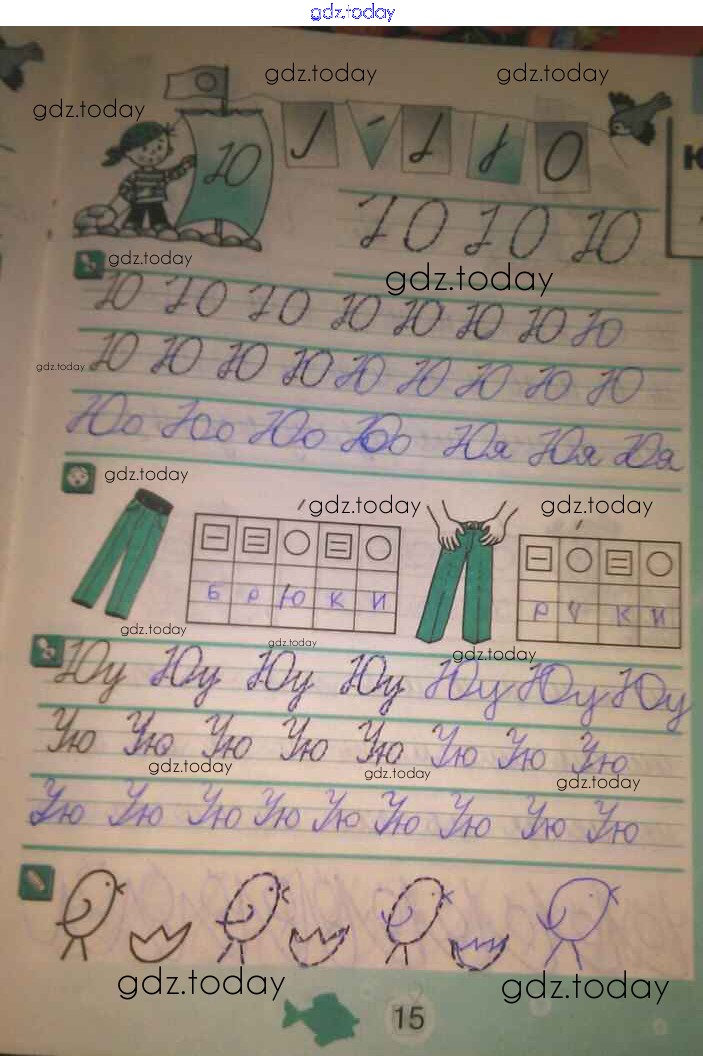 gdz.today
gdz.today gdz.today
gdz.today
Ю
Ю Ю Ю
gdz.today
gdz.today
Ю Ю Ю Ю Ю Ю Ю Ю
gdz.today
Ю Ю Ю Ю Ю Ю Ю Ю Ю
Юо Юо Юо Юо Юя Юя Юя
gdz.today
gdz.today gdz.today
Б Р Ю К И
Р У К И
gdz.today
gdz.today
gdz.today
Юу Юу Юу Юу Юу Юу Юу
Ую Ую Ую Ую Ую Ую Ую Ую
gdz.today
gdz.today
gdz.today
Ую Ую Ую Ую Ую Ую Ую Ую Ую
gdz.today gdz.today
15